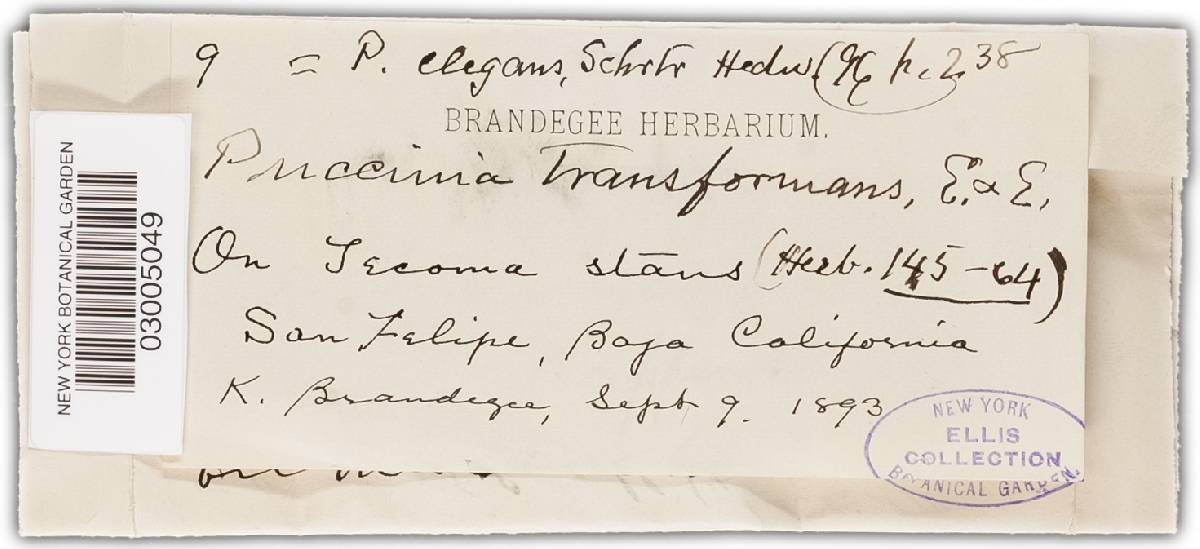 9 = P. elegans, Schrtr Hedw. (9 p. 238
BRANDEGEE HERBARIUM.
Puccinia transformans, E. & E.
On Tecoma stans (Herb. 145-64)
San Felipe, Baja California
K. Brandegee, Sept 9. 1893
NEW YORK BOTANICAL GARDEN
03005049
NEW YORK
ELLIS
COLLECTION
BOTANICAL GARDEN.